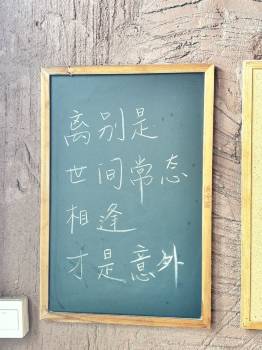 离别是
世间常态
相逢
才是意外